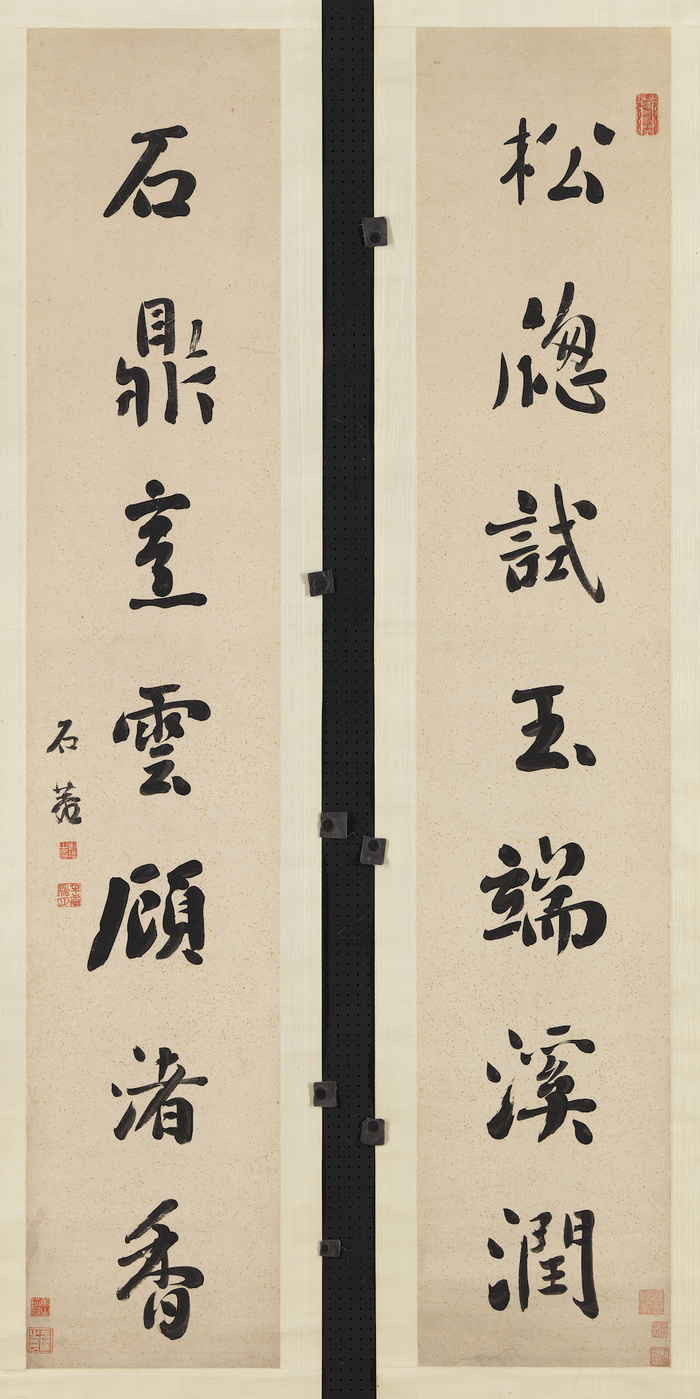 松牕試玉端溪潤
石鼎烹雲顧渚香
石菴